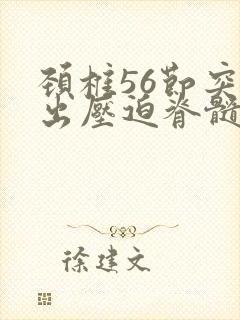 頚椎56節突
出壓迫脊髓
徐建文